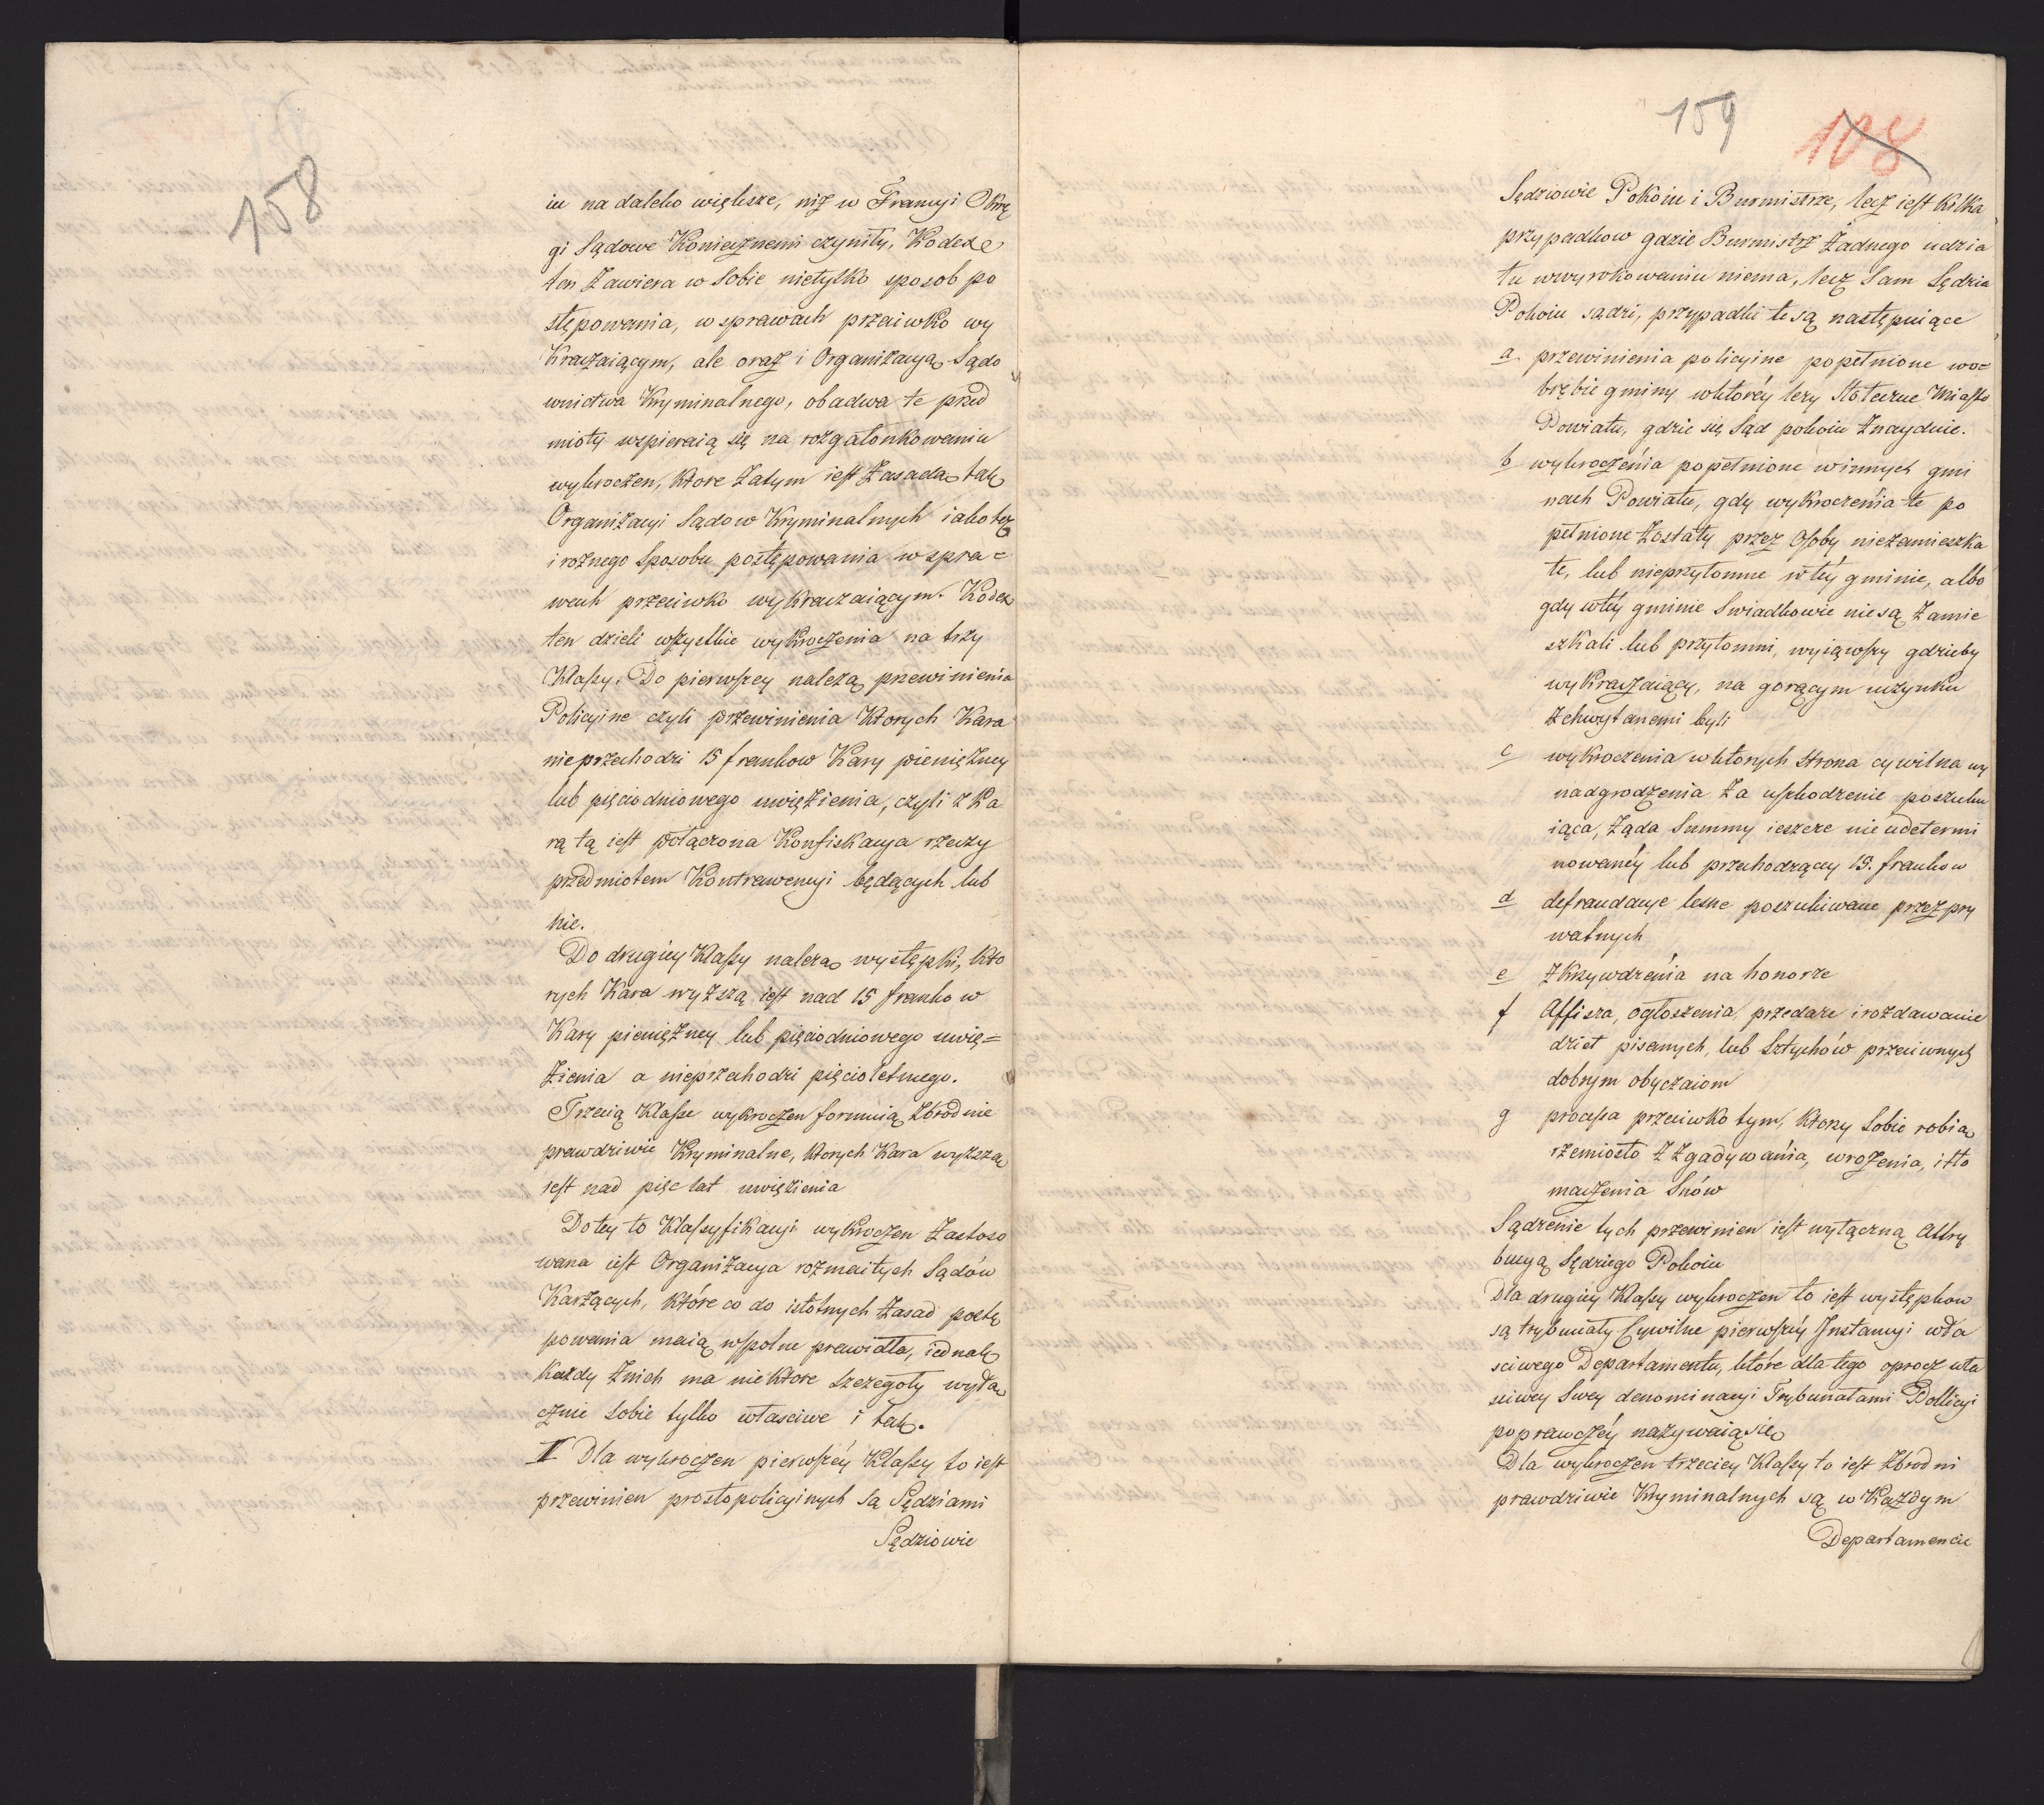 158
iu na daleko większe, niż w Francyi Okrę
gi Sądowe Koniecznemi czyniły, Kodex
ten Zawiera w Sobie nietylko sposob po
stępowania, w sprawach przeciwko wy
Kraczaiącym, ale oraz i Organizacyą Sądo
wnictwa Kryminalnego, obadwa te przed
mioty wspieraią się na rozgatonkowaniu
wykroczen, Ktore Zatym iest Zasadą tak
Organizacyi Sądow Kryminalnych iako też
i rożnego Sposobu postępowania w spra=
wach przeciwko wykraczaiącym. Kodex
ten dzieli wszystkie wykroczenia na trzy
Klassy. Do pierwszey należą przewinienia
Policyine czyli przewinienia Ktorych Kara
nieprzechodzi 15 frankow Kary pieniężney
lub pięciodniowego uwięzienia, czyli z Ka
rą tą iest połączona Konfiskacya rzeczy
przedmiotem Kontrawencyi będących lub
nie.
Do drugiey Klassy należą występki, Kto
rych Kara wyższą iest nad 15 frankow
Kary pieniężney lub pięciodniowego uwię=
zienia a nieprzechodzi pięcioletniego.
Trzecią Klasse wykroczen formuią Zbrodnie
prawdziwie Kryminalne, Ktorych Kara wyższą
iest nad pięc lat uwięzienia
Do tey to Klassyfikacyi wykroczen Zastoso
wana iest Organizacya rozmaitych Sądów
Karzących, Które co do istotnych Zasad postę
powania maią wspolne prawidła, iednak
Każdy Znich ma niektore Szczegoły wyłą
cznie Sobie tylko własciwe i tak.
I Dla wykroczen pierwszéy Klassy to iest
przewinien prosto policyinych Są Sędziami
Sędziowie
159
108
Sędziowie Pokoiu i Burmistrze, lecz iest Kilka
przypadkow gdzie Burmistrz Żadnego udzia
łu wwyrokowaniu niema, lecz Sam Sędzia
Pokoiu sądzi, przypadki te są następuiące
a przewinienia policyine popełnione wo=
brębie gminy wktoréy leży Stołeczne Miasto
Powiatu, gdzie się Sąd pokoiu Znayduie.
b wykroczenia popełnione winnych gmi
nach Powiatu, gdy wykroczenia te po
pełnione Zostały przez Osoby niezamieszka
łe, lub nieprzytomne w téy gminie, albo
gdy wtéy gminie Swiadkowie nie są Zamie
szkali lub przytomni, wyiąwszy gdzieby
wykraczaiący, na gorącym uczynku
Zchwytanemi byli
c wykroczenia wktórych Strona cywilna wy
nadgrodzenia Za uszkodzenie poszuku
iąca, Żąda Summy ieszcze nieudetermi
nowanéy lub przechodzącey 15. frankow
d defraudacye lesne poszukiwane przez pry
watnych
e Zkrzywdzenia na honorze
f Affisza, ogłoszenia przedaże i rozdawanie
dzieł pisanych, lub Sztychów przeciwnych
dobrym obyczaiom
g processa przeciwko tym, Ktorzy Sobie robią
rzemiosło Z Zgadywánia, wrożenia, i tło
maczenia Snów
Sądzenie tych przewinien iest wyłączną Attry
bucyą Sędziego Pokoiu
Dla drugiéy Klassy wykroczen to iest występkow
są trybunały Cywilne pierwszéy Instancyi wła
sciwego Departamentu, które dla tego oprocz wła
sciwey Swey denominacyi Trybunałami Pollicyi
poprawczéy nazywaią się
Dla wykroczen trzeciey Klassy to iest Zbrodni
prawdziwie Kryminalnych są w Każdym
Departamencie